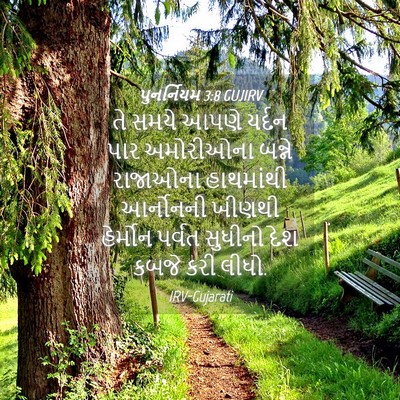 પુનર્નિયમ 3:8 GUJIRV
તે સમયે આપણે યર્દન
પાર અમોરીઓના બન્ને
રાજાઓના હાથમાંથી
આર્નોનની ખીણથી
હેર્મોન પર્વત સુધીનો દેશ
કબજે કરી લીધો.
IRV-Gujarati